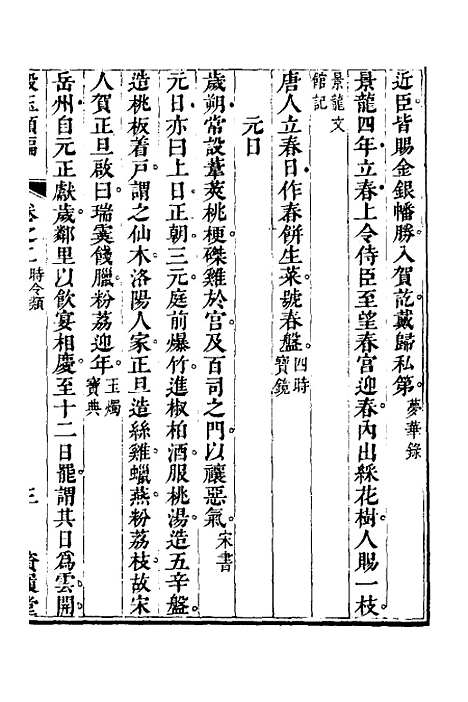 近臣皆賜金銀幡勝入賀訖戴歸私第。夢華錄
景龍四年立春上令侍臣至望春宮迎春內出綵花樹。人賜一枝。
景龍文館記
唐人立春日作春餅生菜號春盤。四時寶鏡
元日
歲朔常設葦茭桃梗磔雞於宮及百司之門以禳惡氣。宋書
元日亦曰上日正朝三元庭前爆竹進椒柏酒服桃湯造五辛盤。
造桃板着戶謂之仙木洛陽人家正旦造絲雞蠟燕粉荔枝故宋
人賀正旦啟曰瑞霙餞臘粉荔迎年。玉燭寶典
岳州自元正獻歲鄰里以飲宴相慶至十二日罷謂其日為雲開
類編
卷之二 時令類
三
堂